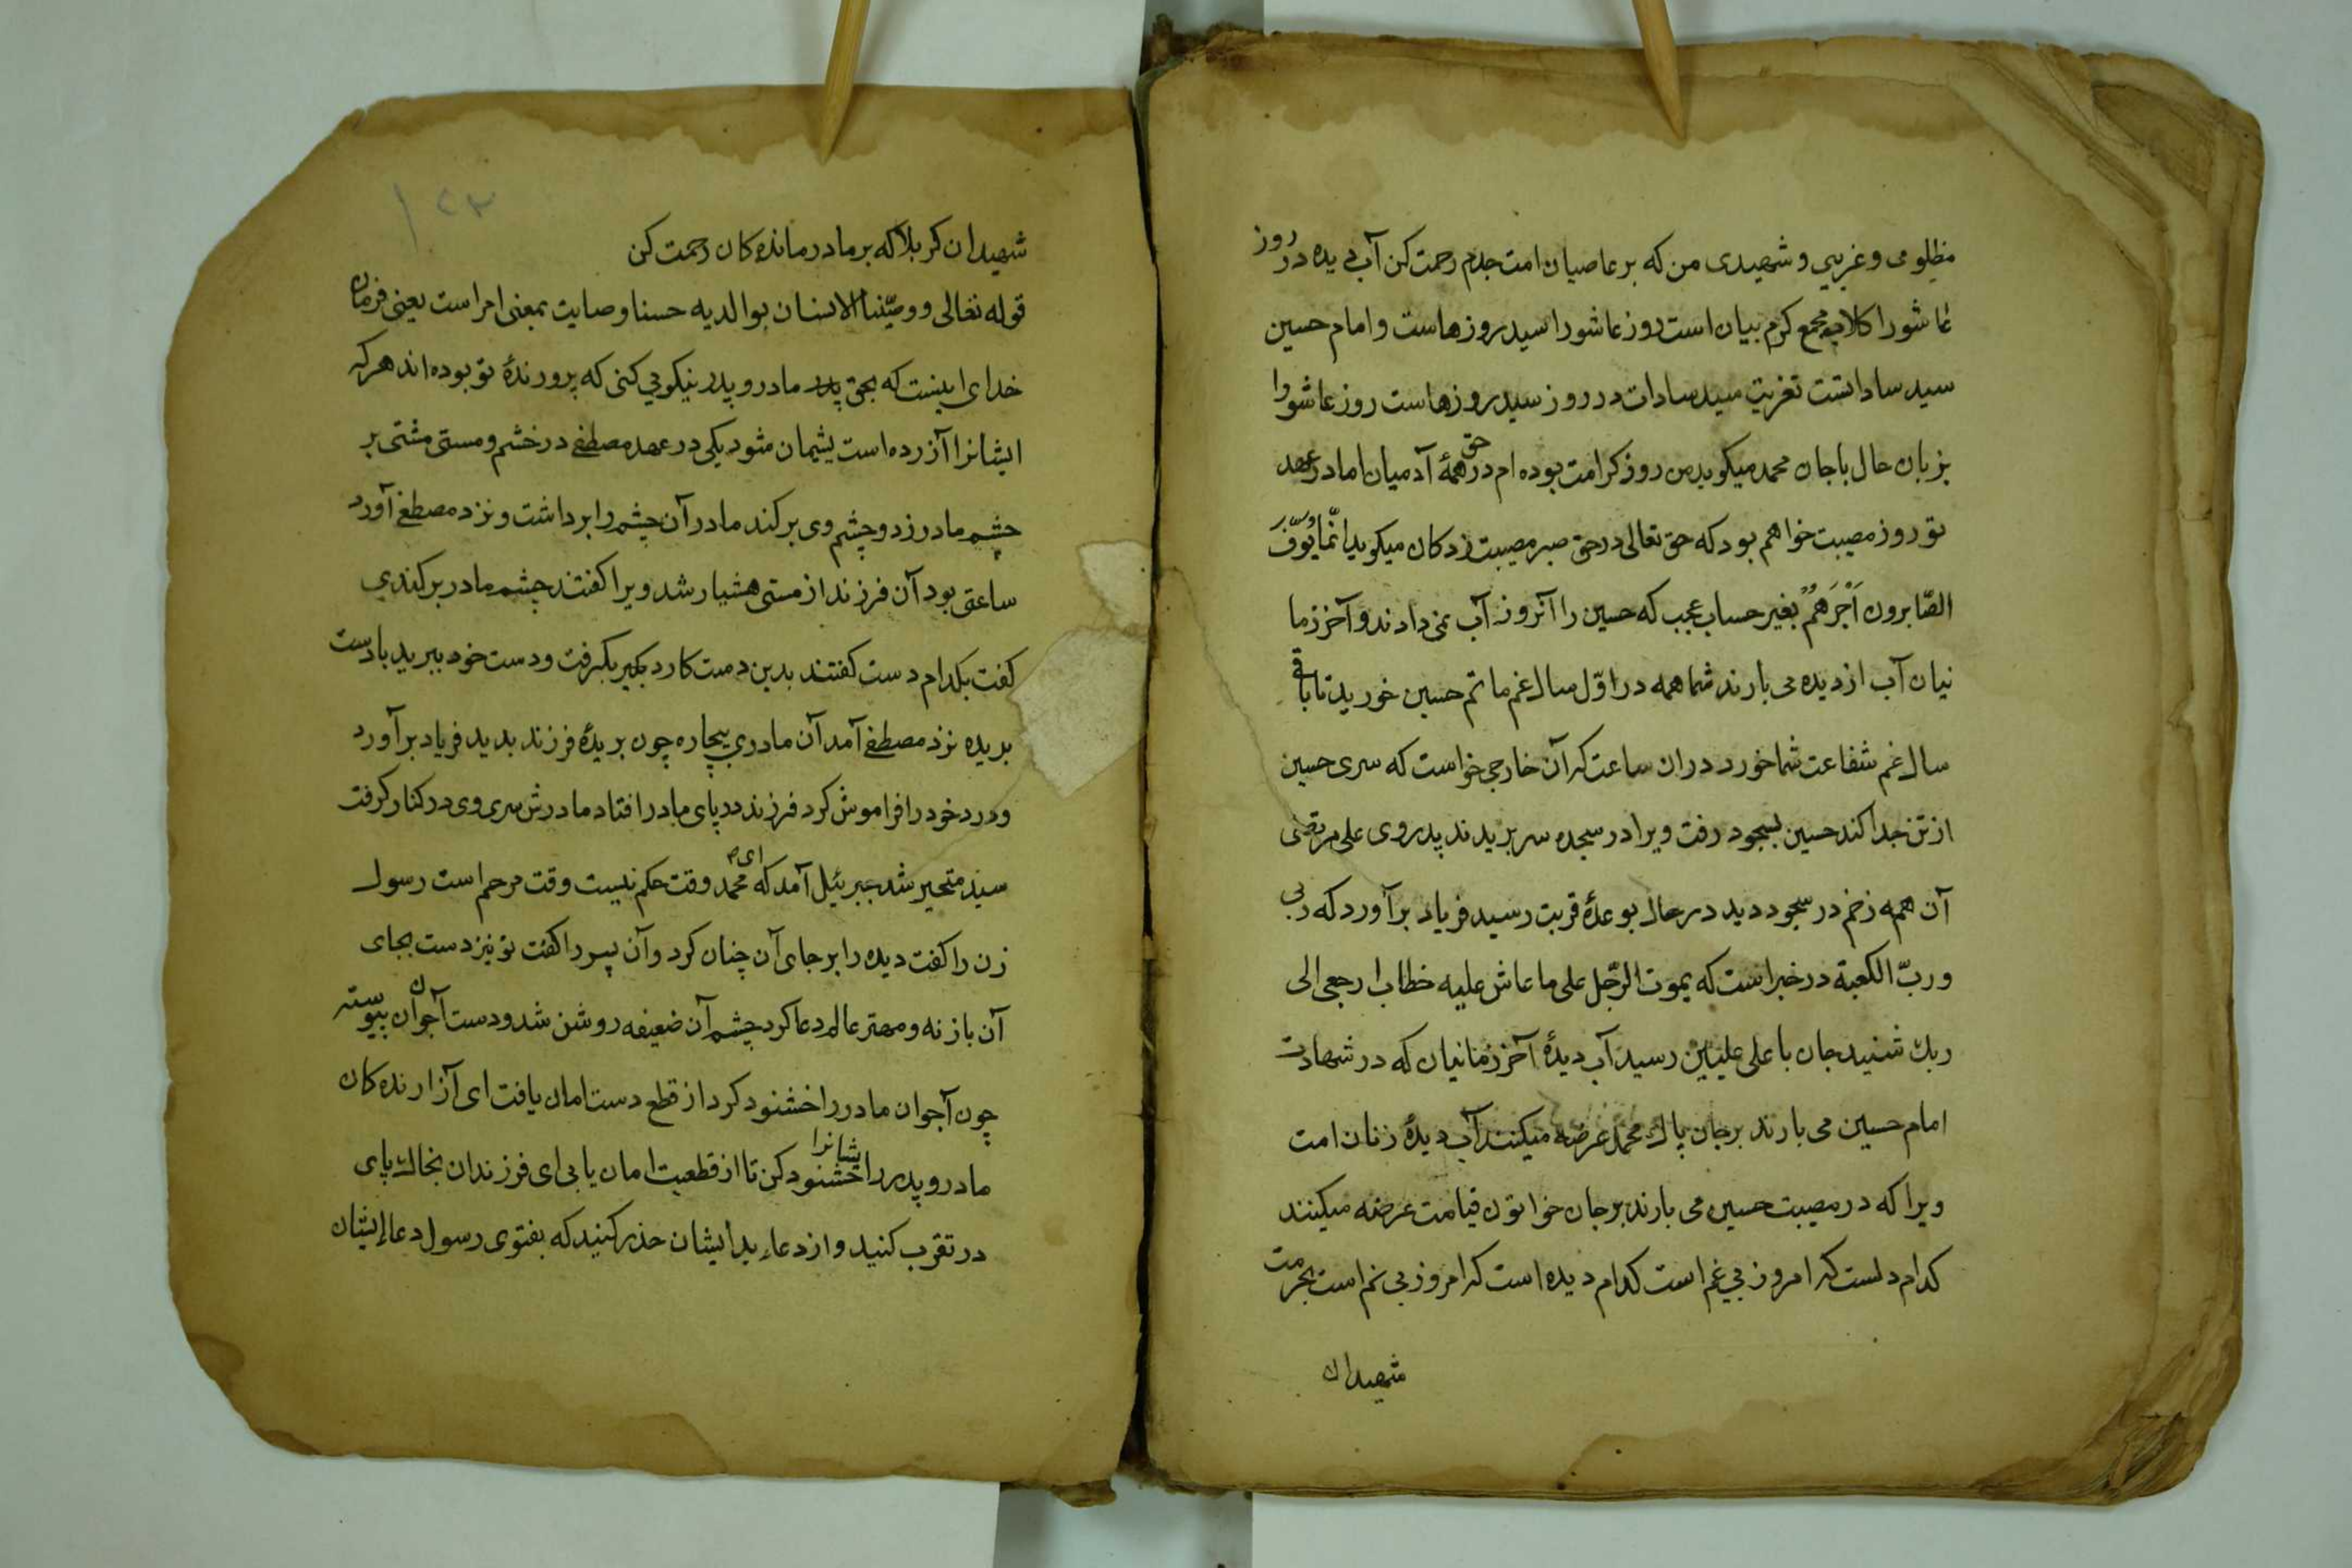 مظلومی و غریبی و شهیدی من که بر عاصیان امت جدم رحمت کن آب دیده در روز
عاشورا کلاب مجمع کرم بیان است روز عاشورا سید روزهاست و امام حسین
سید ساداتست تعزیت سید سادات در روز سید روزهاست روز عاشورا
بزبان حال با جان محمد میکوید من روز کرامت بوده ام در حق همۀ آدمیان اما در عهد
تو روز مصیبت خواهم بود که حق تعالی در حق صبر مصیبت زدکان میکوید انّما یُوَفَّی
الصّابرون اَجْرَهُمْ بغیر حساب عجب که حسین را آنروز آب نمی دادند و آخر زما
نیان آب از دیده می بارند شما همه در اوّل سال غم ماتم حسین خورید تا باقی
سال غم شفاعت شما خورد دران ساعت که آن خارجی خواست که سری حسین
از تن جدا کند حسین بسجود رفت ویرا در سجده سر بریدند پدر وی علی مرتضی
آن همه زخم در سجود دید در حال بوعدۀ قربت رسید فریاد برآورد که ربی
و ربّ الکعبة در خبر است که یموت الرّجل علی ما عاش علیه خطاب ارجعی الی
ربك شنید جان با علی علیین رسید آب دیدۀ آخر زمانیان که در شهادت
امام حسین می بارند بر جان پاك محمد عرضه میکنند آب دیدۀ زنان امت
ویرا که در مصیبت حسین می بارند بر جان خواتون قیامت عرضه میکنند
کدام دلست که امروز بی غم است کدام دیده است که امروز بی نم است بحرمت
شهیدان
۱۲۳
شهیدان کربلا که بر ما درمانده کان رحمت کن
قوله تعالی و وصّینا الانسان بوالدیه حسنا وصایت بمعنی امر است یعنی فرمان
خدای اینست که بحق پدر مادر و پدر نیکویی کنی که پرورندۀ تو بوده اند هر که
ایشانرا آزرده است پشیمان شود یکی در عهد مصطفی در خشم و مستی مشتی بر
چشم مادر زد و چشم وی برکند مادر آن چشم را برداشت و نزد مصطفی آورد
ساعتی بود آن فرزند از مستی هشیار شد ویرا کفتند چشم مادر برکندی
کفت بکدام دست کفتند بدین دست کارد بکیر بکرفت و دست خود ببرید با دست
بریده نزد مصطفی آمد آن مادری بیچاره چون بریدۀ فرزند بدید فریاد برآورد
و درد خود را فراموش کرد فرزند در پای مادر افتاد مادرش سری وی در کنار کرفت
سید متحیر شد جبرئیل آمد که ای محمد وقت حکم نیست وقت مرحم است رسول
زن را کفت دیده را بر جای آن چنان کرد و آن پسر را کفت تو نیز دست بجای
آن باز نه و مهتر عالم دعا کرد چشم آن ضعیفه روشن شد و دست آن جوان پیوسته
چون آجوان مادر را خشنود کرد از قطع دست امان یافت ای آزارنده کان
مادر و پدر را ایشانرا خشنود کن تا از قطعیت امان یابی ای فرزندان بخاك پای
در تقرب کنید و از دعاء بد ایشان حذر کنید که بفتوی رسول دعاء ایشان